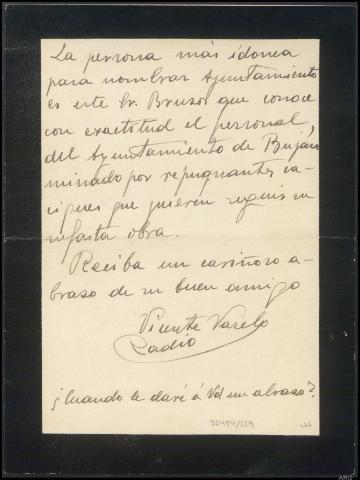 La persona más idonea
para nombrar Ayuntamiento
es este Sr. Bruzos que conoce
con exactitud el personal
del Ayuntamiento de Bujan,
minado por repugnantes ca-
ciques que quieren seguir su
nefasta obra.
Reciba un cariñoso a-
brazo de su buen amigo
Vicente Varela
Radio
¿Cuando le daré á Vd un abrazo?
32484/129